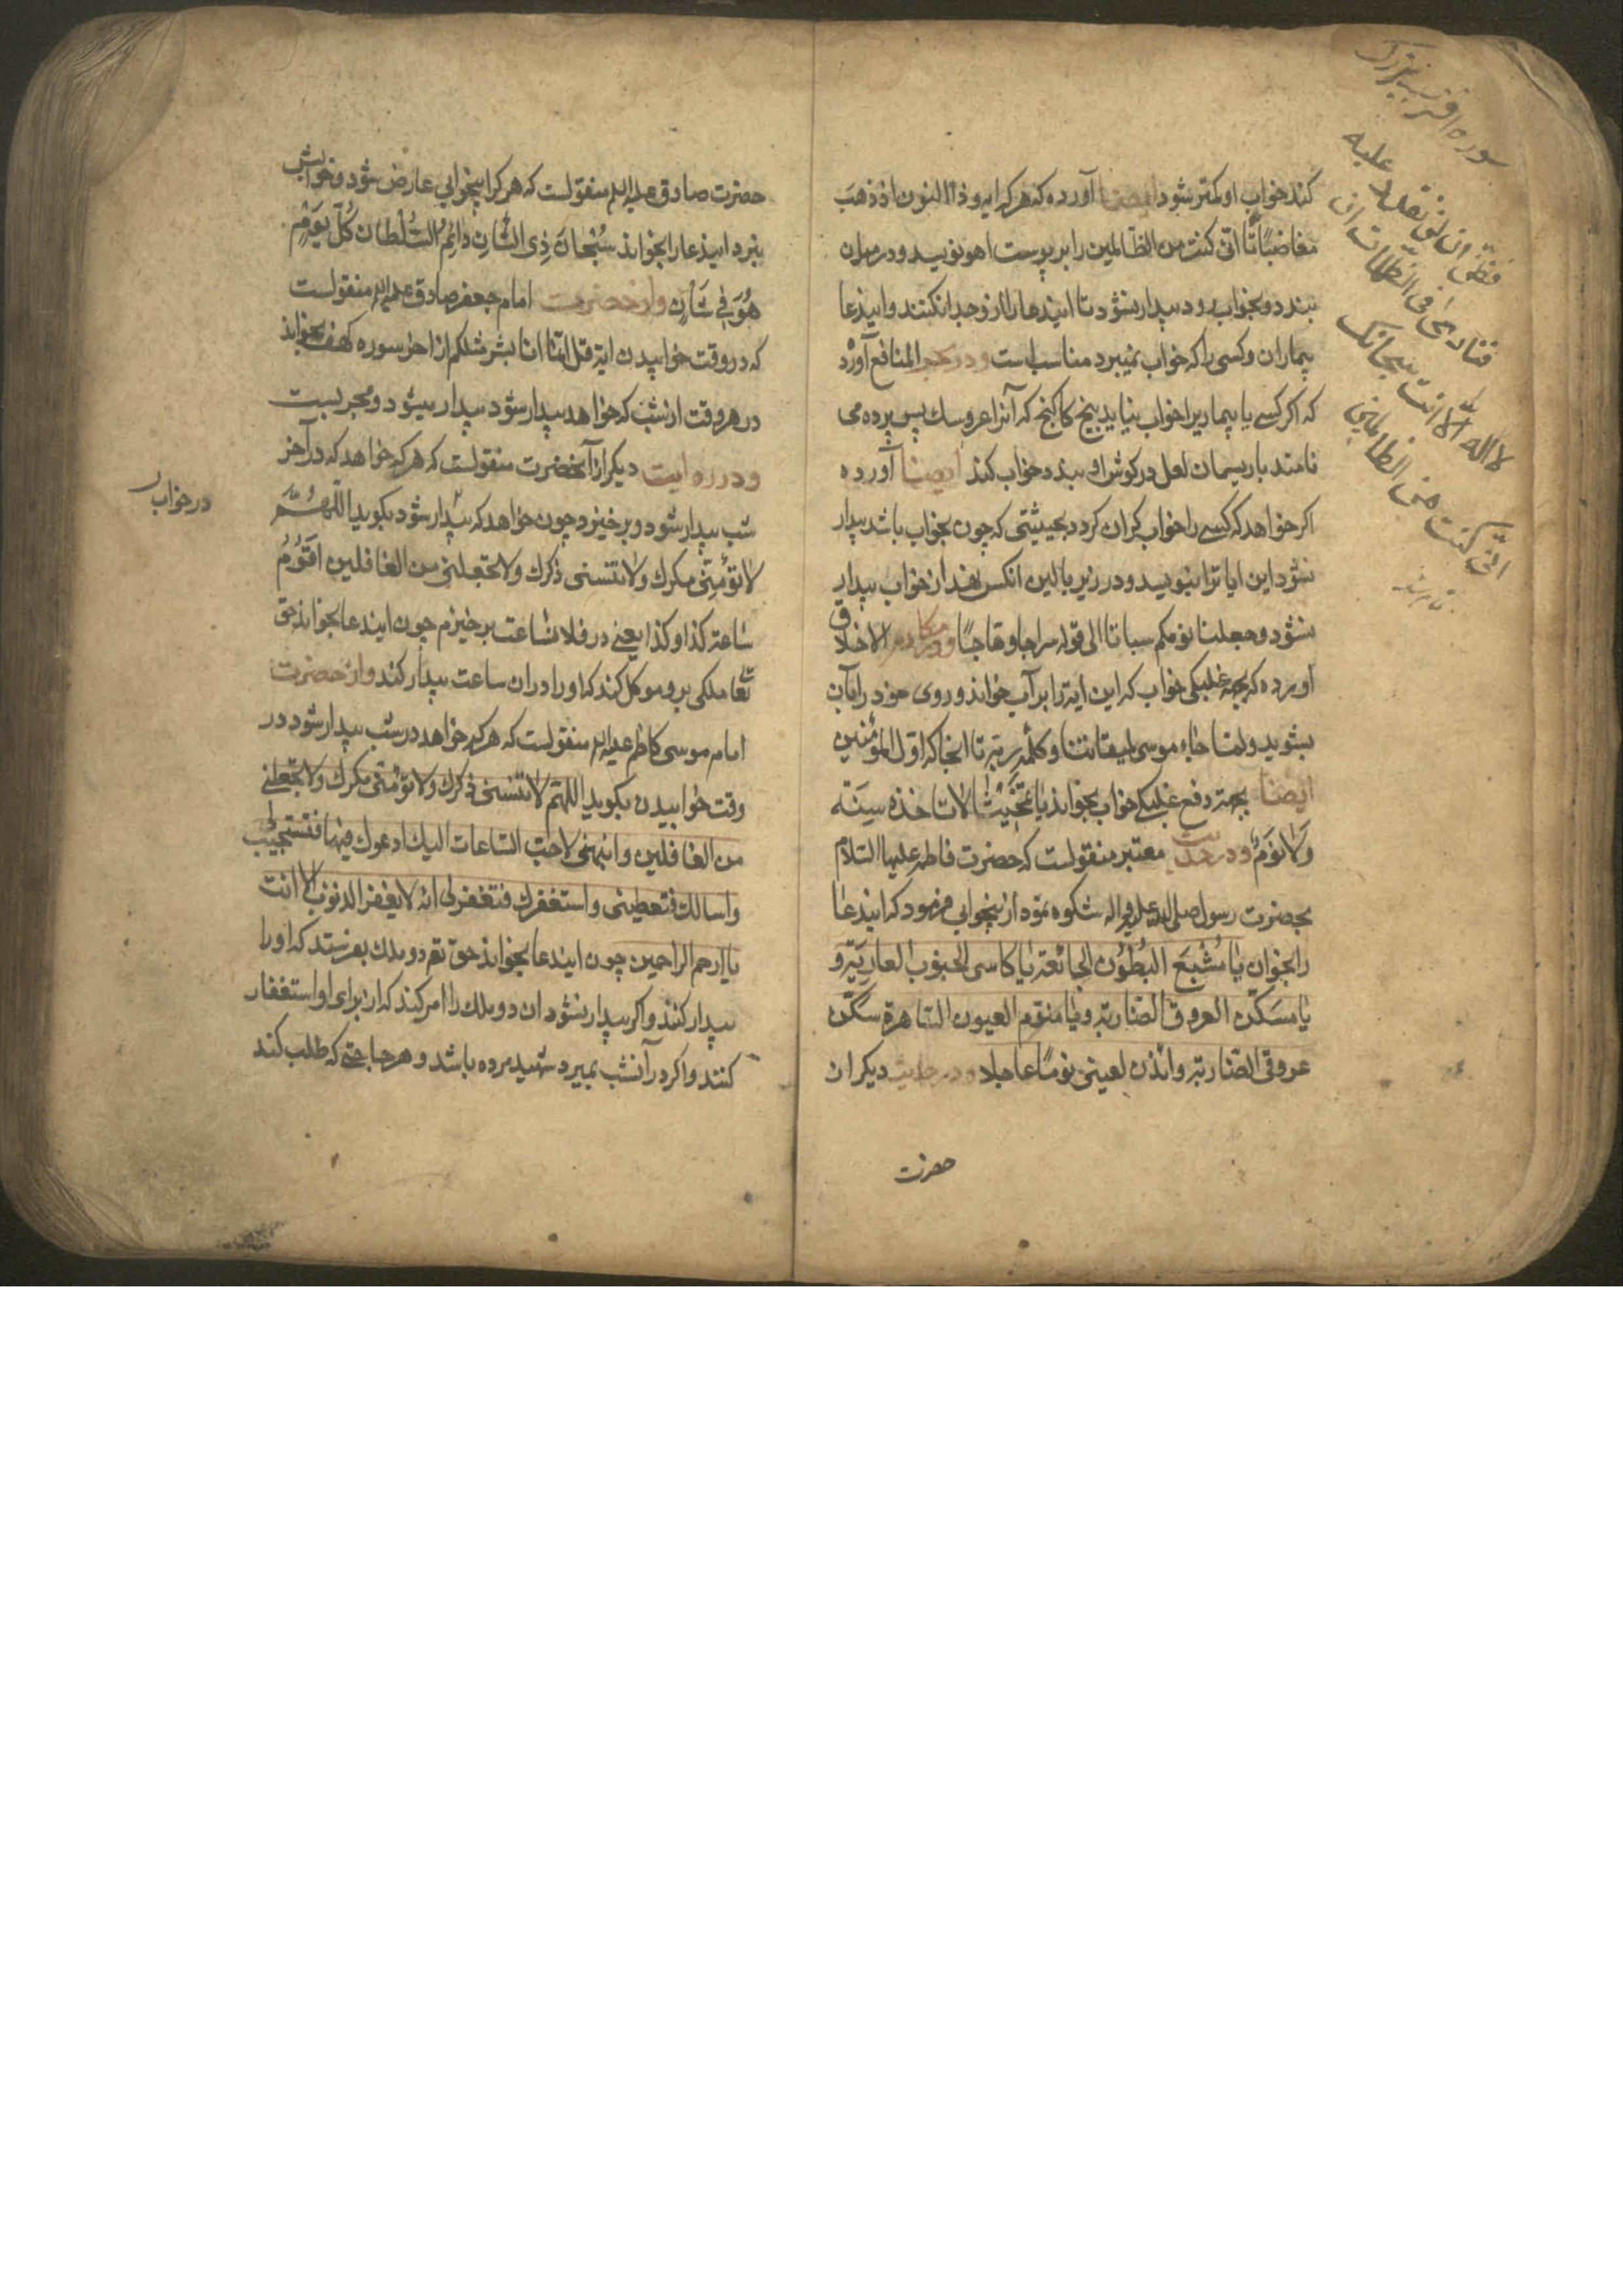 کند خواب او کمتر شود ایضا آورده که هر که ایه وذا النون اذ ذهب
مغاضبا تا انی کنت من الظالمین را بر پوست اهو نویسد و در میان
بندد و بخواب رود بیدار نشود تا ایندعا را از خود جدا نکنند و ایندعا
بیماران و کسی را که خواب نمیبرد مناسب است و در المنافع آورد
که اگر کسے یا بیماریرا خواب نیاید بیخ کاکنج که آنرا عروسک پس پرده می
نامند با ریسمان لعل در کوش او بندد خواب کند ایضا آورده
اکر خواهد که کسے را خواب کران کردد بحیثیتی که چون بخواب باشد بیدار
نشود این ایاترا بنویسد و در زیر بالین انکس نهند از خواب بیدار
نشود وجعلنا نومکم سباتا الی قوله سراجا وهاجا و در مکارم الاخلاق
آورده که بجهة غلبکی خواب که این ایة را بر آب خواند و روی خود را بآن
بشوید ولما جاء موسی لمیقاتنا وکلمه ربه تا انجا که اول المؤمنین
ایضا بجهة دفع غلبکے خواب بخواند یا لا تاخذه سنة
ولا نوم و در حدیث معتبر منقولست که حضرت فاطمه علیها السلام
بحضرت رسول صلی الله علیه واله شکوه نمود از بیخوابی فرمود که ایندعا
را بخوان یا مشبع البطون الجائعة یا کاسی الجنوب العاریة و
یا مسکن العروق الضاربة ویا منوم العیون الساهرة سکن
عروقی الضاربة وائذن لعینی نوما عاجلا و در حدیث دیکر از
حضرت
فظن ان لن نقدر علیه
فنادی فی الظلمات ان
لا اله الا انت سبحانک
انی کنت من الظالمین
حضرت صادق علیه السلم منقولست که هر کرا بیخوابی عارض شود و خوابش
نبرد ایندعا را بخواند سبحان ذی الشان دائم السلطان کل یوم
هو فی شان و از حضرت امام جعفر صادق علیه السلم منقولست
که در وقت خوابیدن ایة قل انما انا بشر مثلکم از اخر سوره کهف بخواند
در هر وقت از شب که خواهد بیدار شود بیدار میشود و مجربست
و در روایت دیکر از آنحضرت منقولست که هر که خواهد که در آخر
شب بیدار شود و بر خیزد چون خواهد که بیدار شود بکوید اللهم
در خواب
لا تؤمنی مکرک ولا تنسنی ذکرک ولا تجعلنی من الغافلین اقوم
ساعة کذا و کذا یعنے در فلان ساعت بر خیزم چون ایندعا بخواند حق
تعا ملکی بر و موکل کند که او را در ان ساعت بیدار کند و از حضرت
امام موسی کاظم علیه السلم منقولست که هر که خواهد در شب بیدار شود در
وقت خوابیدن بکوید اللهم لا تنسنی ذکرک ولا تؤمنی مکرک ولا تجعلنے
من الغافلین وانبهنی لاحب الساعات الیک ادعوک فیها فتستجیب لی
واسالک فتعطینی واستغفرک فتغفر لی انه لا یغفر الذنوب الا انت
یا ارحم الراحمین چون ایندعا بخواند حق تعه دو ملک بفرستد که او را
بیدار کنند و اکر بیدار نشود ان دو ملک را امر کند که از برای او استغفار
کنند و اکر در آنشب بمیرد شهید مرده باشد و هر حاجتے که طلب کند